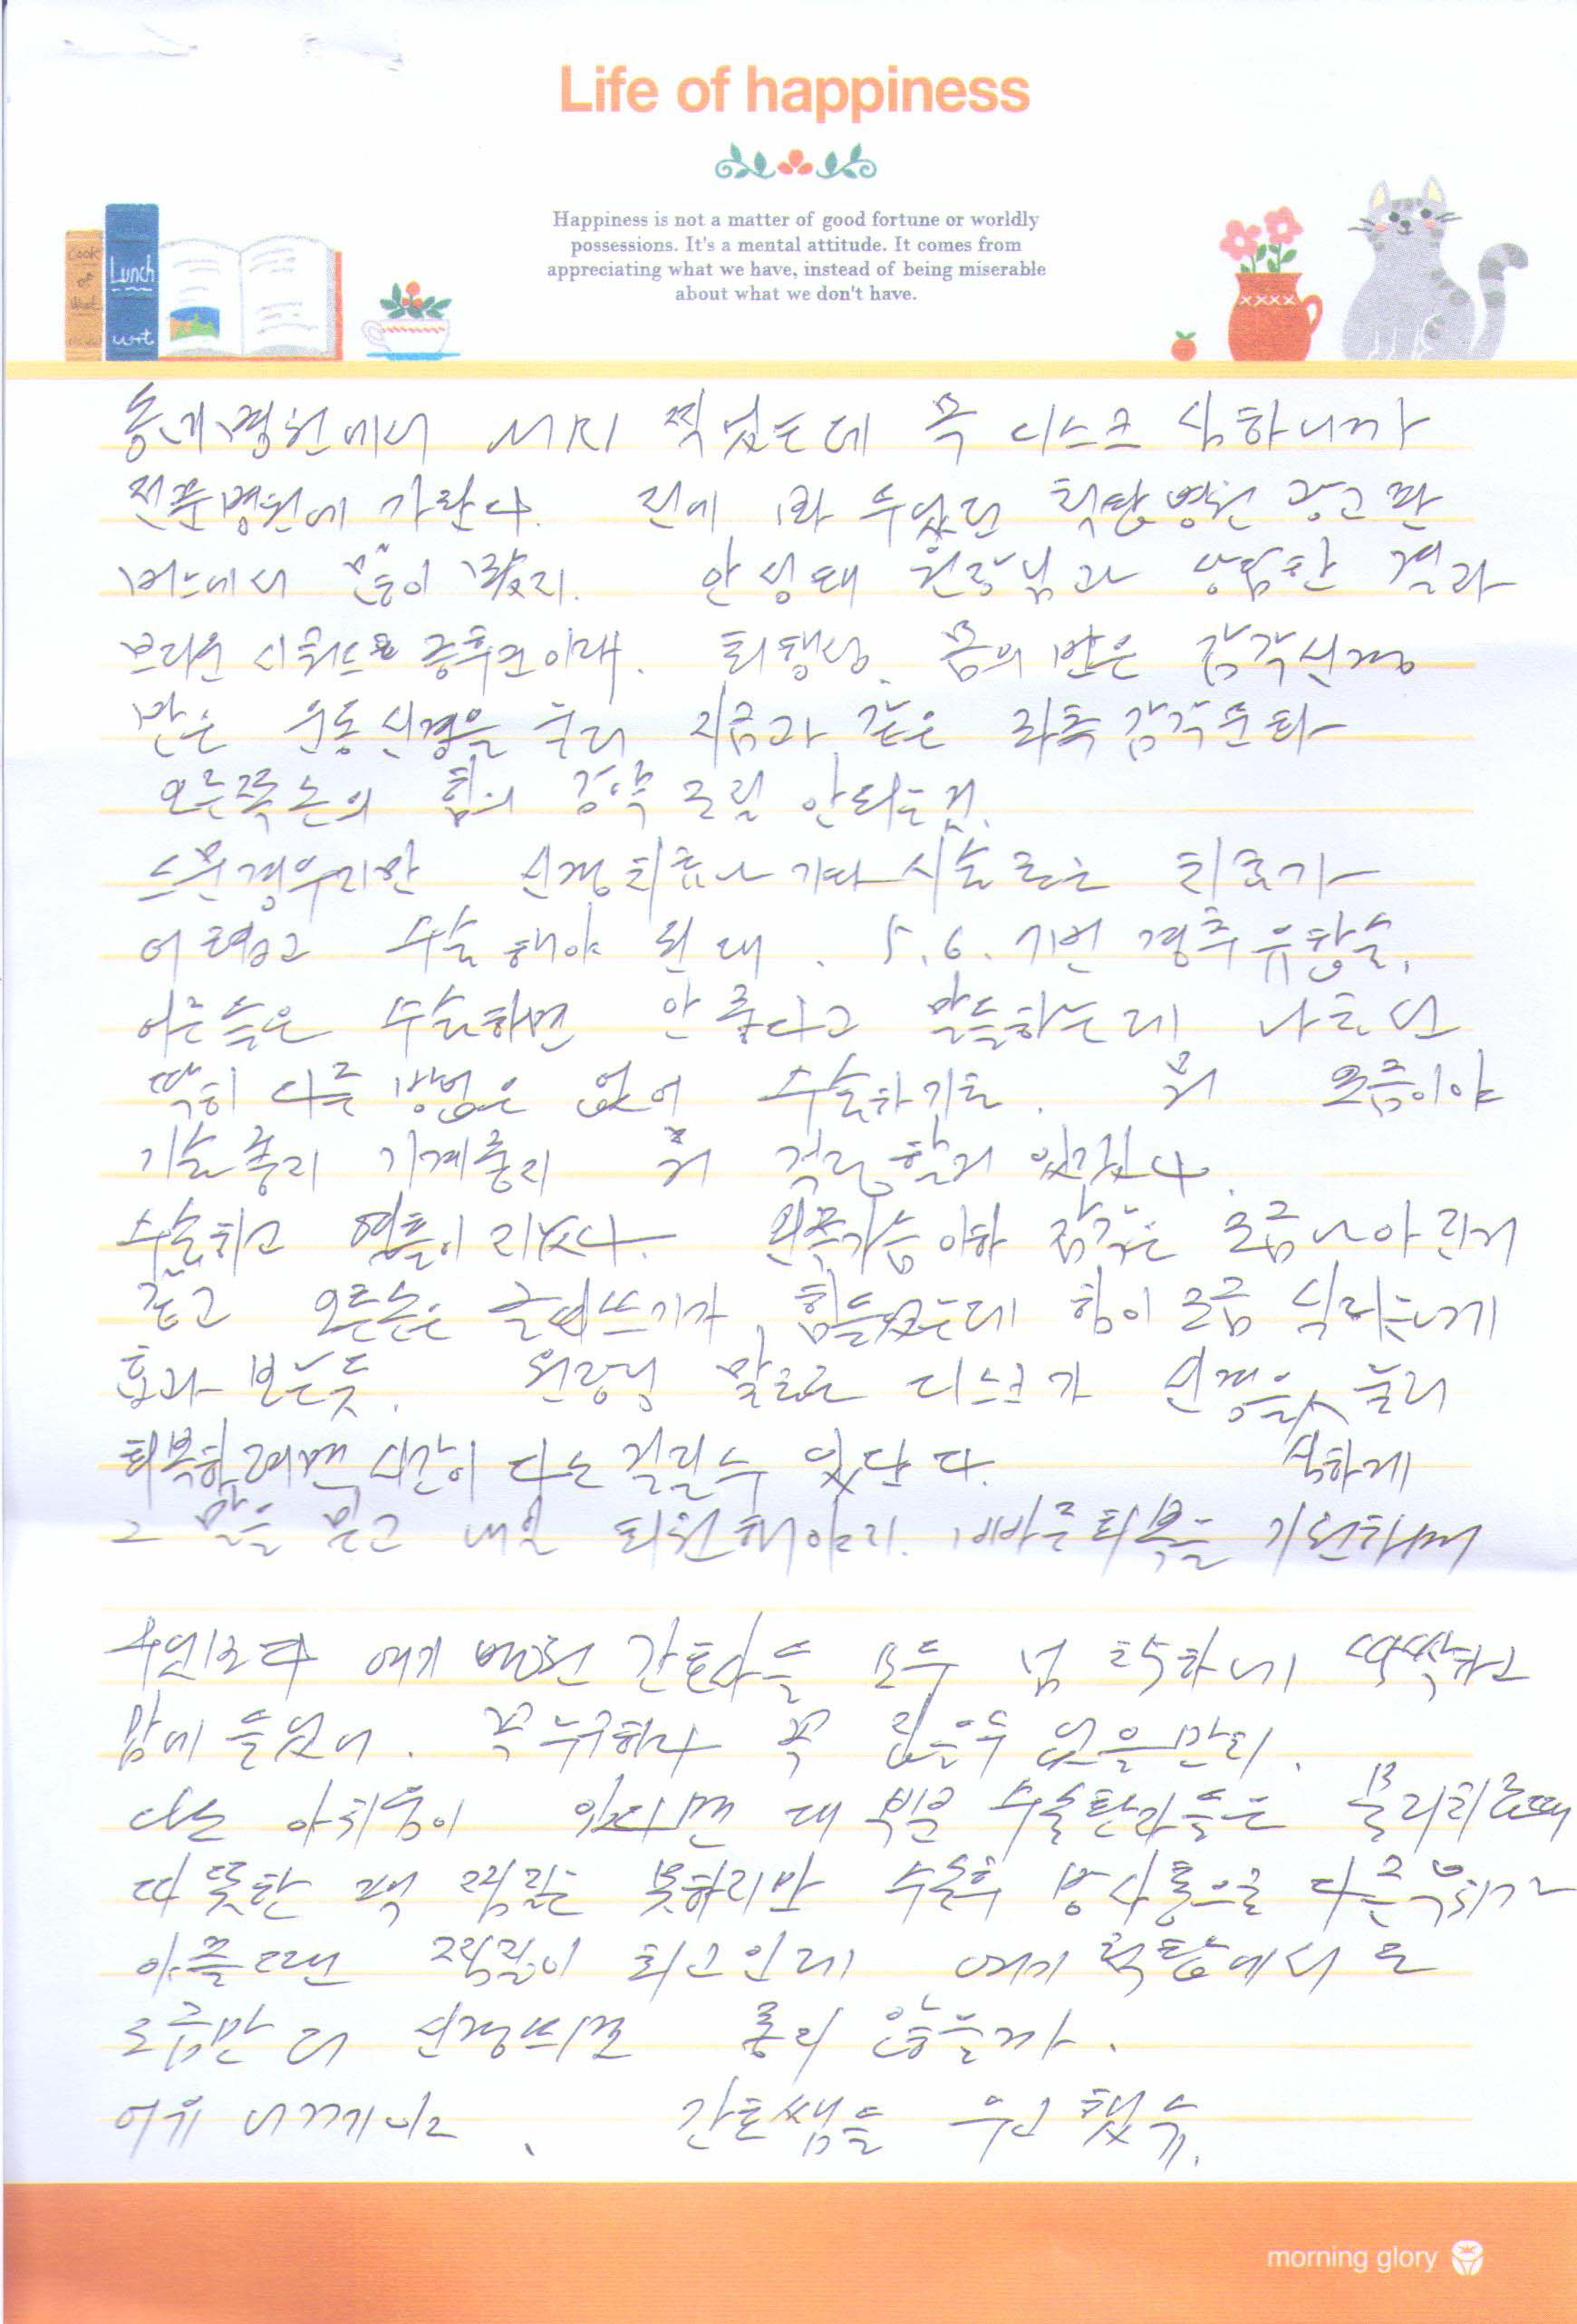 Life of happiness
Happiness is not a matter of good fortune or worldly
possessions. It's a mental attitude. It comes from
appreciating what we have, instead of being miserable
about what we don't have.
Cook
of
Lunch
동네병원에서 MRI 찍었는데 목 디스크 심하니까
전문병원에 가란다. 전에 봐 두었던 척탑병원 광고판
버스에서 많이 봤지. 안성태 원장님과 상담한 결과
브라운 시쿼드 증후군이래. 퇴행성. 몸의 반은 감각신경
반은 운동신경을 눌러 지금과 같은 좌측감각둔화
오른쪽 손의 힘의 강약 조절 안되는것.
드문경우지만 신경치료나 기타시술로는 치료가
어렵고 수술해야 된대. 5.6.7번 경추유합술.
어른들은 수술하면 안좋다고 말들하는데 나로선
딱히 다른 방법은 없어 수술하기로. 뭐 요즘이야
기술좋지 기계좋지 뭐 걱정할거 있겠나.
수술하고 열흘이 지났다. 왼쪽가슴이하 감각은 조금나아진거
같고 오른손은 글씨쓰기가 힘들었는데 힘이 조금 실리는게
효과 보는듯. 원장님 말로는 디스크가 신경을 눌러
심하게
회복하려면 시간이 다소 걸릴수 있단다.
그 말을 믿고 내일 퇴원해야지. 빠른회복을 기원하며
무엇보다 여기 병원 간호사들 모두 넘 착하네 싹싹하고
맘에 들었어. 꼭 누구하나 꼭 집을수 없을만치.
다소 아쉬움이 있다면 대부분 수술환자들은 물리치료때
따뜻한 팩 찜질은 못하지만 수술후 방사통으로 다른부위가
아플때면 찜질이 최고인데 여기 척탑에서도
조금만 더 신경쓰면 좋지 않을까.
간호쌤들 수고했슈.
morning glory